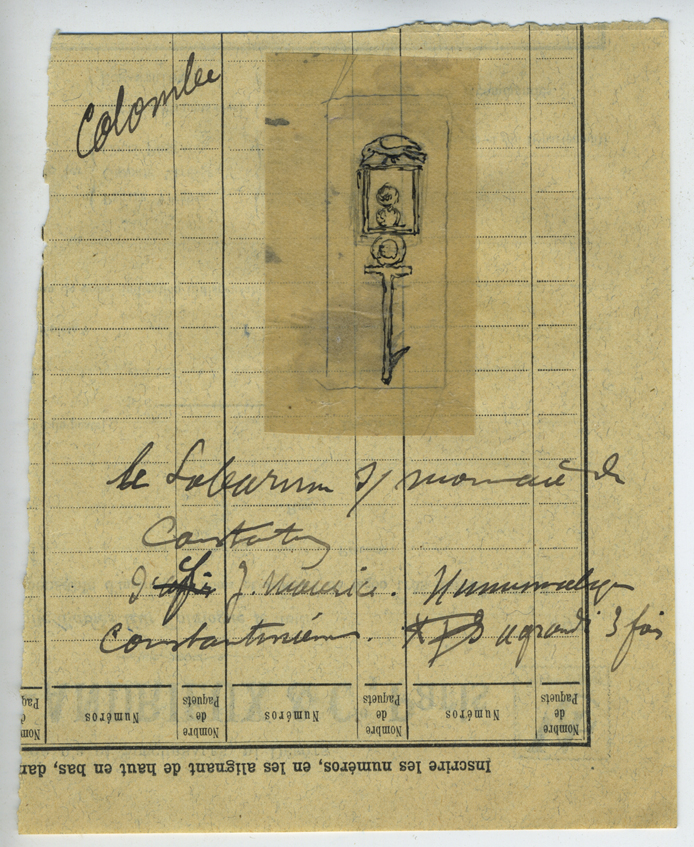 Colombe
le Labarum s/ monnaie de
Constantin
d'ap J. Maurice. Numismatique
Constantinienne. agrandi 3 fois
Nombre de Paquets
Numéros
Nombre de Paquets
Numéros
Nombre de Paquets
Numéros
Nombre de Paquets
Inscrire les numéros, en les alignant de haut en bas, dan